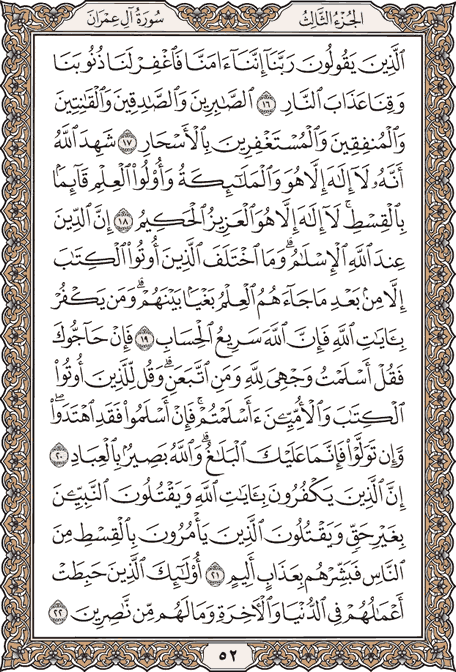 سُورَةُ آلِ عِمْرَان
الجُزْءُ الثَّالِثُ
ٱلَّذِينَ يَقُولُونَ رَبَّنَآ إِنَّنَآ ءَامَنَّا فَٱغْفِرْ لَنَا ذُنُوبَنَا
وَقِنَا عَذَابَ ٱلنَّارِ ١٦ ٱلصَّٰبِرِينَ وَٱلصَّٰدِقِينَ وَٱلْقَٰنِتِينَ
وَٱلْمُنفِقِينَ وَٱلْمُسْتَغْفِرِينَ بِٱلْأَسْحَارِ ١٧ شَهِدَ ٱللَّهُ
أَنَّهُۥ لَآ إِلَٰهَ إِلَّا هُوَ وَٱلْمَلَٰٓئِكَةُ وَأُو۟لُوا۟ ٱلْعِلْمِ قَآئِمَۢا
بِٱلْقِسْطِ ۚ لَآ إِلَٰهَ إِلَّا هُوَ ٱلْعَزِيزُ ٱلْحَكِيمُ ١٨ إِنَّ ٱلدِّينَ
عِندَ ٱللَّهِ ٱلْإِسْلَٰمُ ۗ وَمَا ٱخْتَلَفَ ٱلَّذِينَ أُوتُوا۟ ٱلْكِتَٰبَ
إِلَّا مِنۢ بَعْدِ مَا جَآءَهُمُ ٱلْعِلْمُ بَغْيَۢا بَيْنَهُمْ ۗ وَمَن يَكْفُرْ
بِـَٔايَٰتِ ٱللَّهِ فَإِنَّ ٱللَّهَ سَرِيعُ ٱلْحِسَابِ ١٩ فَإِنْ حَآجُّوكَ
فَقُلْ أَسْلَمْتُ وَجْهِىَ لِلَّهِ وَمَنِ ٱتَّبَعَنِ ۗ وَقُل لِّلَّذِينَ أُوتُوا۟
ٱلْكِتَٰبَ وَٱلْأُمِّيِّـۧنَ ءَأَسْلَمْتُمْ ۚ فَإِنْ أَسْلَمُوا۟ فَقَدِ ٱهْتَدَوا۟ ۖ
وَّإِن تَوَلَّوْا۟ فَإِنَّمَا عَلَيْكَ ٱلْبَلَٰغُ ۗ وَٱللَّهُ بَصِيرٌۢ بِٱلْعِبَادِ ٢٠
إِنَّ ٱلَّذِينَ يَكْفُرُونَ بِـَٔايَٰتِ ٱللَّهِ وَيَقْتُلُونَ ٱلنَّبِيِّـۧنَ
بِغَيْرِ حَقٍّ وَيَقْتُلُونَ ٱلَّذِينَ يَأْمُرُونَ بِٱلْقِسْطِ مِنَ
ٱلنَّاسِ فَبَشِّرْهُم بِعَذَابٍ أَلِيمٍ ٢١ أُو۟لَٰٓئِكَ ٱلَّذِينَ حَبِطَتْ
أَعْمَٰلُهُمْ فِى ٱلدُّنْيَا وَٱلْءَاخِرَةِ وَمَا لَهُم مِّن نَّٰصِرِينَ ٢٢
٥٢